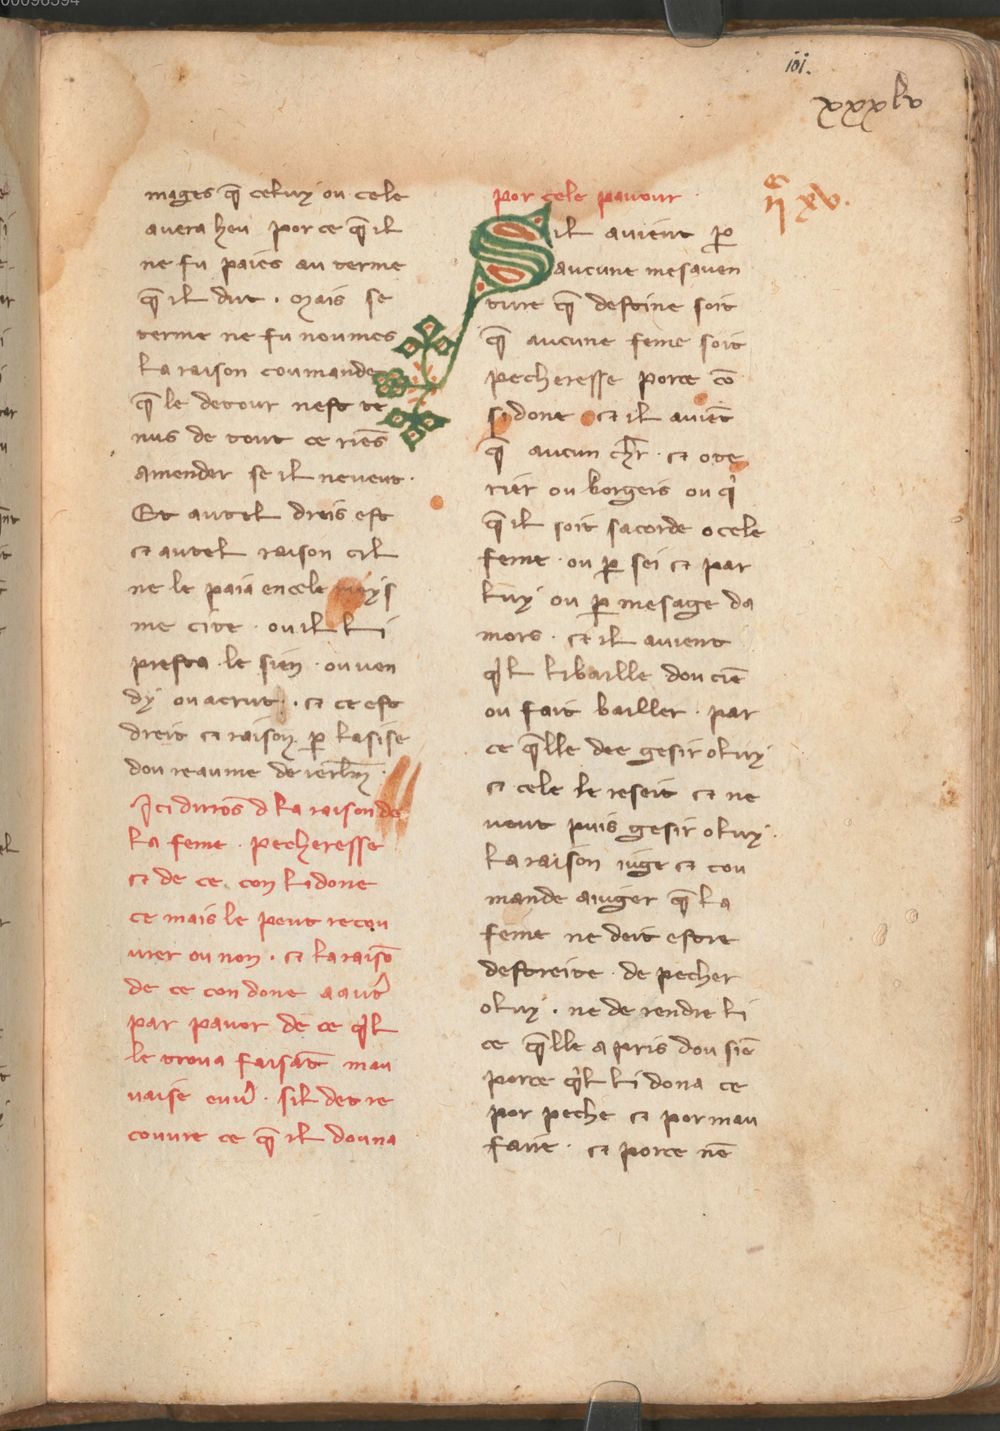 00096594
ioi.
xxxlv
mages q̄ celuy ou cele
auera heu por ce q̄ il
ne fu paies au terme
q̄ il dut . Mais se
terme ne fu noumes
la raison coumande
q̄ le detour nest te
nus de tout ce riēs
amender se il ne veut .
Et autel dreis est
et autel raison cil
ne le paia en cele mays
me cite . ou il li
presta . le sien . ou ven
dy ou acrut . et ce est
dreit et raison p̱ lasise
dou reaume de ierl̄m
Ici dirrōs d la raison de
la feme . pecheresse
et de ce con li done
ce mais le peut recou
urer ou non . et la raisō
de ce con done a autr̄
par pauor de ce q̓l
le troua faisāt mau
uaise euur̄ . sil det re
couure ce q̄ il douna
por cele pauour
Sil auient p̱
aucune mesauen
ture q̄ destine soit
q̄ aucune feme soit
pecheresse por ce cō
si done et il auiēt
q̄ aucun chr̄ . et ote
rier ou borgeis ou q̓
q̄ il soit sacorde o cele
feme . ou p̱ sei et par
luy ou p̱ mesage da
mors . et il auient
q̓l li baille dou ciē
ou fait bailler . par
ce q̄lle dee gesir o luy
et cele le reseit et ne
veut puis gesir o luy .
la raison iuge et cou
mande a iuger q̄ la
feme ne deit estre
destreite de pecher
o luy . ne de rendre li
ce q̄lle a pris dou siē
por ce q̓l li dona ce
por peche et por mau
faire . et por ce nē
xv.